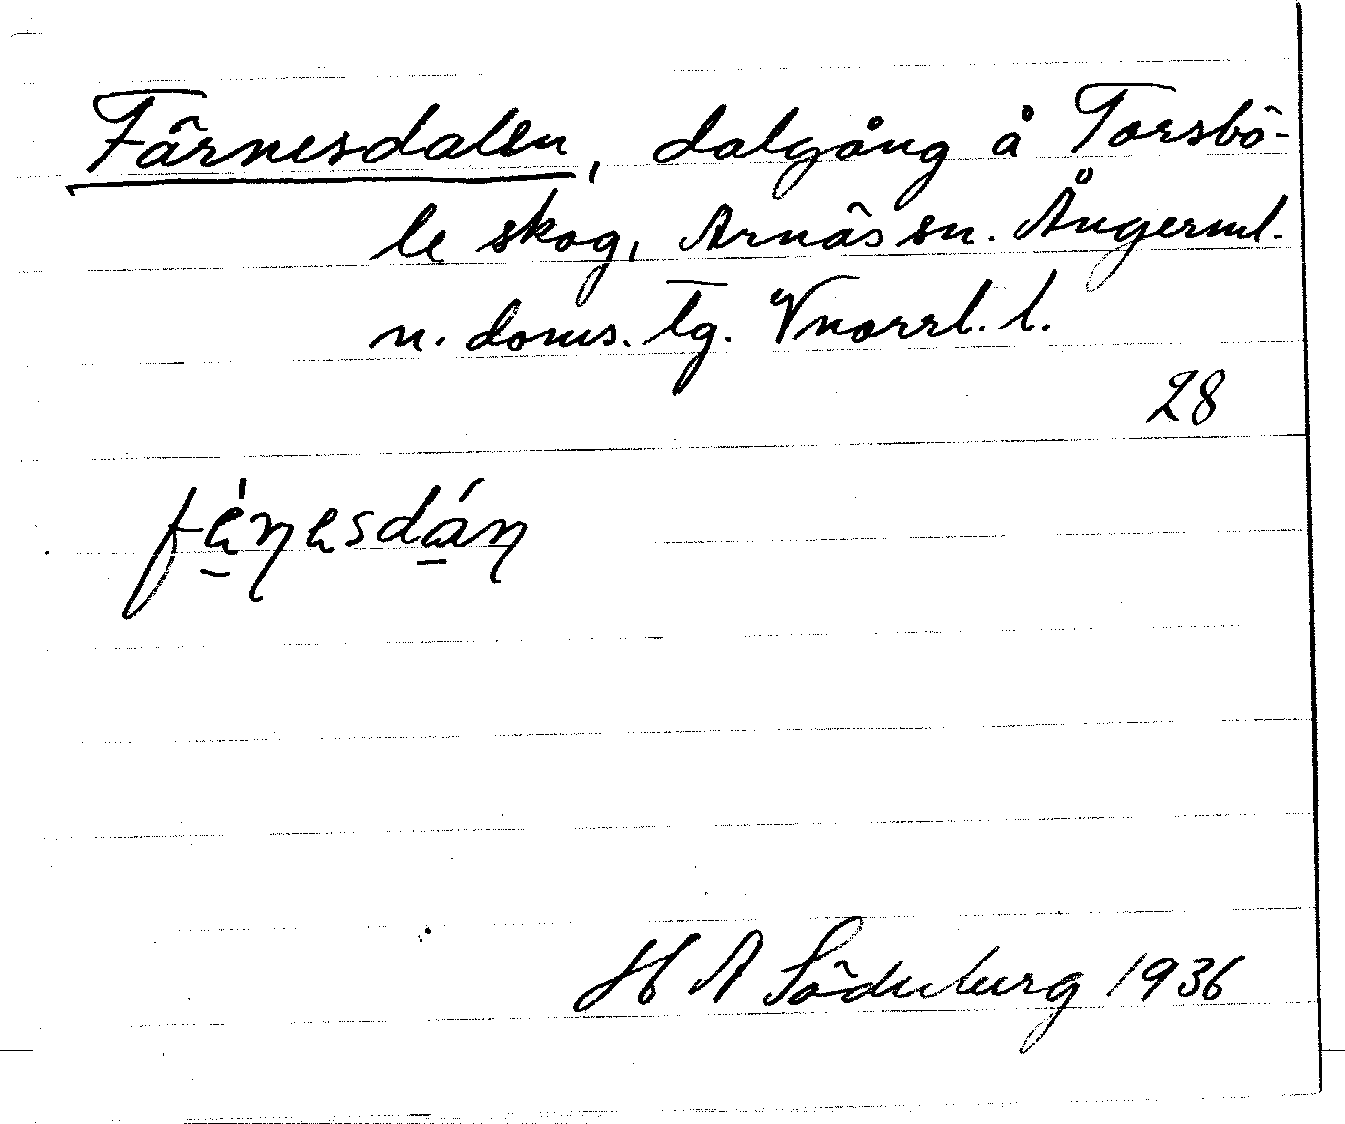 Färnesdalen, dalgång å Torsbö-
le skog, Arnäs sn. Ångerml.
n. doms. tg. Vnorrl. l.
28
H A Söderberg 1936